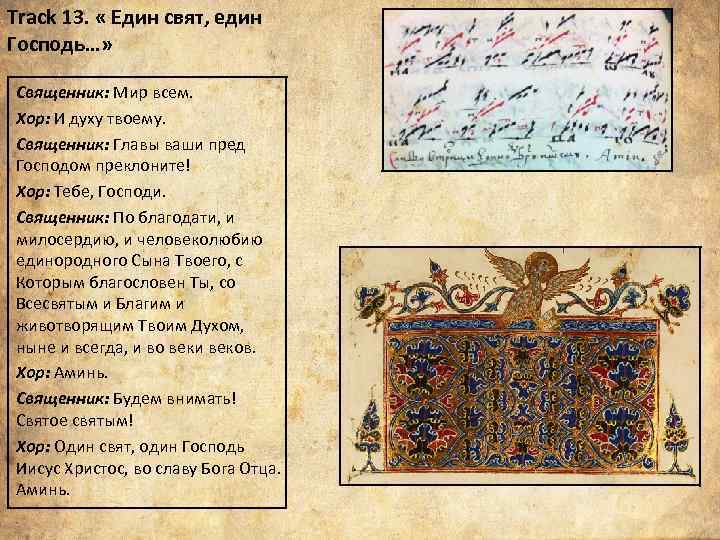 Track 13. « Един свят, един
Господь…»
Священник: Мир всем.
Хор: И духу твоему.
Священник: Главы ваши пред
Господом преклоните!
Хор: Тебе, Господи.
Священник: По благодати, и
милосердию, и человеколюбию
единородного Сына Твоего, с
Которым благословен Ты, со
Всесвятым и Благим и
животворящим Твоим Духом,
ныне и всегда, и во веки веков.
Хор: Аминь.
Священник: Будем внимать!
Святое святым!
Хор: Один свят, один Господь
Иисус Христос, во славу Бога Отца.
Аминь.